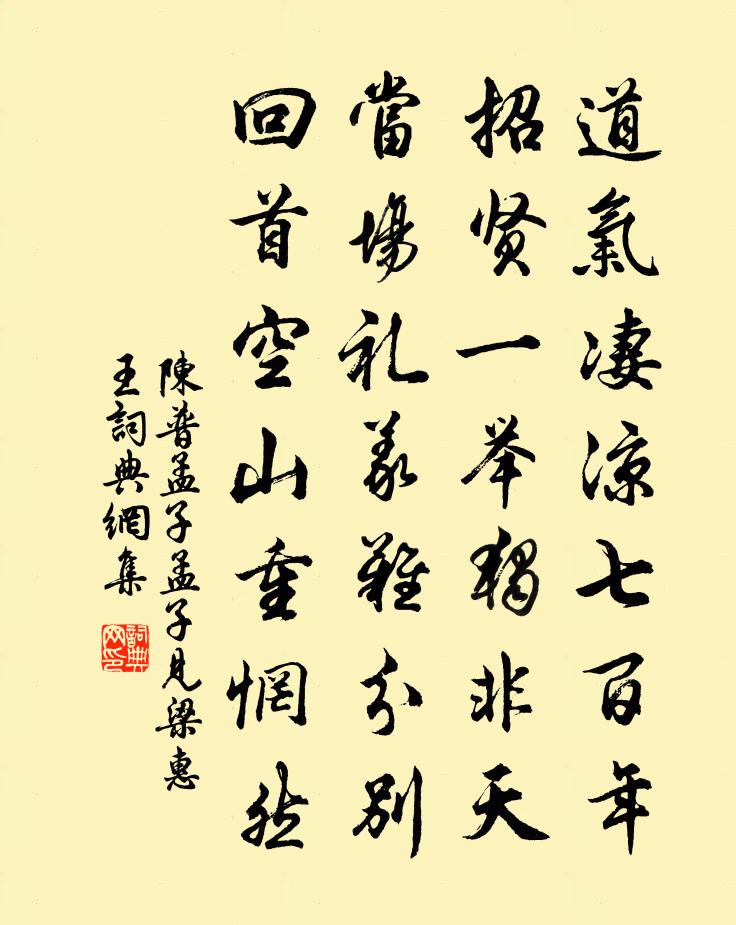 道氣凄涼七百年
招贤一举獨非天
當場礼義難分别
回首空山重惘然
陳普孟子孟子見梁惠
王詞典網集
詞典
网印